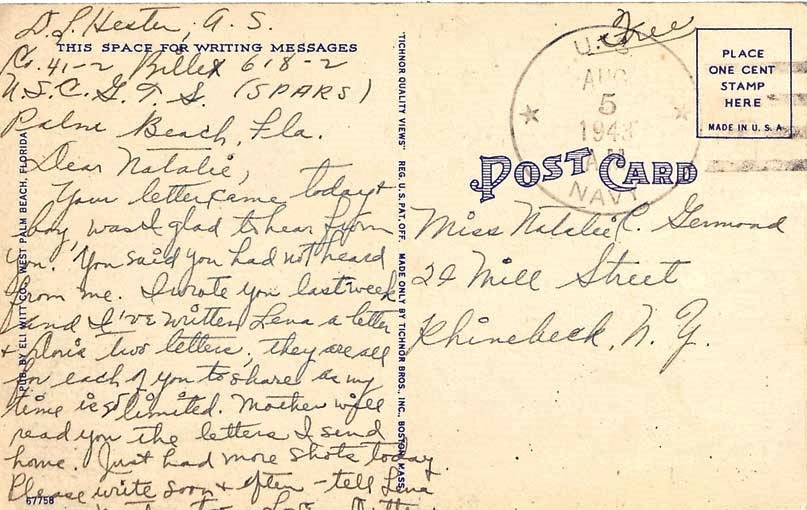 D. L. Hester, A. S.
THIS SPACE FOR WRITING MESSAGES
Co. 41-2 Billet 618-2
U.S.C.G.T.S. (SPARS)
Palm Beach, Fla.
Dear Natalie,
Your letter came today &
boy, was I glad to hear from
you. You said you had not heard
from me. I wrote you last week
and I've written Lena a letter
& Gloria two letters, they are all
for each of you to share as my
time is so limited. Mother will
read you the letters I send
home. Just had more shots today
Please write soon & often - tell Lena
67758
PUB. BY ELI WITT CO., WEST PALM BEACH, FLORIDA
"TICHNOR QUALITY VIEWS" REG. U. S. PAT. OFF. MADE ONLY BY TICHNOR BROS., INC., BOSTON, MASS.
Free
U.S.
AUG
5
1943
A.M.
NAVY
PLACE
ONE CENT
STAMP
HERE
MADE IN U. S. A.
POST CARD
Miss Natalie C. Germond
22 Mill Street
Rhinebeck, N. Y.